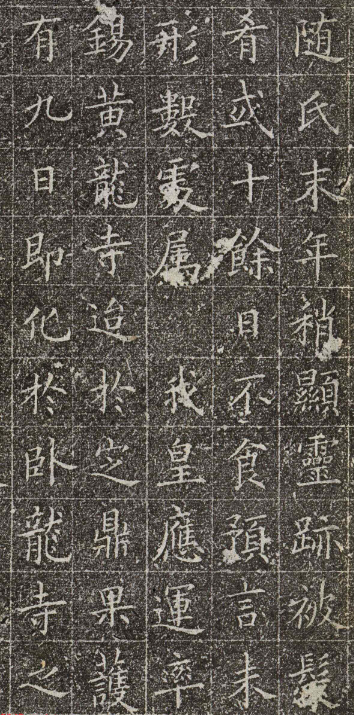 随氏末年稍顯靈跡被髮
肴或十餘日不食預言未
形數處属 我皇應運率
錫黃龍寺迨於㝎鼎果護
有九日即化於卧龍寺之